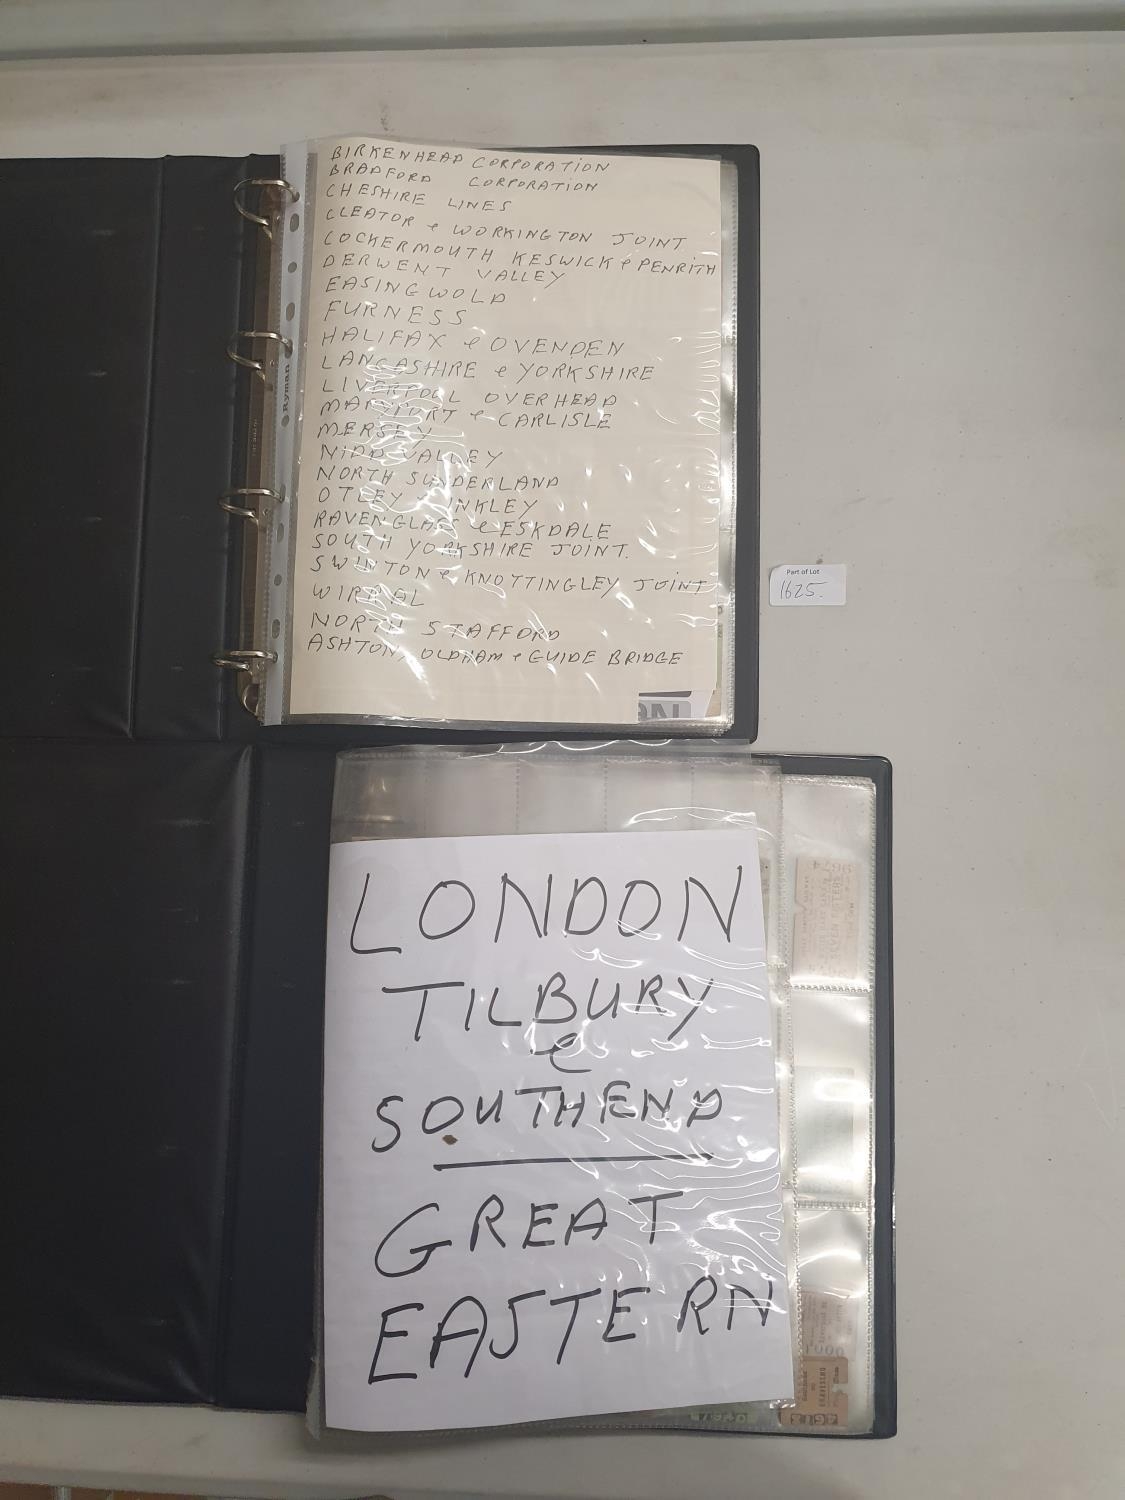 BIRKENHEAD CORPORATION
BRADFORD CORPORATION
CHESHIRE LINES
CLEATOR & WORKINGTON JOINT
COCKERMOUTH KESWICK & PENRITH
DERWENT VALLEY
EASINGWOLD
FURNESS
HALIFAX & OVENDEN
LANCASHIRE & YORKSHIRE
LIVERPOOL OVERHEAD
MARYPORT & CARLISLE
MERSEY
NIDD VALLEY
NORTH SUNDERLAND
OTLEY
RAVENGLASS & ESKDALE
SOUTH YORKSHIRE JOINT.
SWINTON & KNOTTINGLEY JOINT
WIRRAL
NORTH STAFFORD
ASHTON, OLDHAM & GUIDE BRIDGE
Ryman
Part of Lot
1625.
LONDON
TILBURY
&
SOUTHEND
GREAT
EASTERN
SEVEN SISTERS